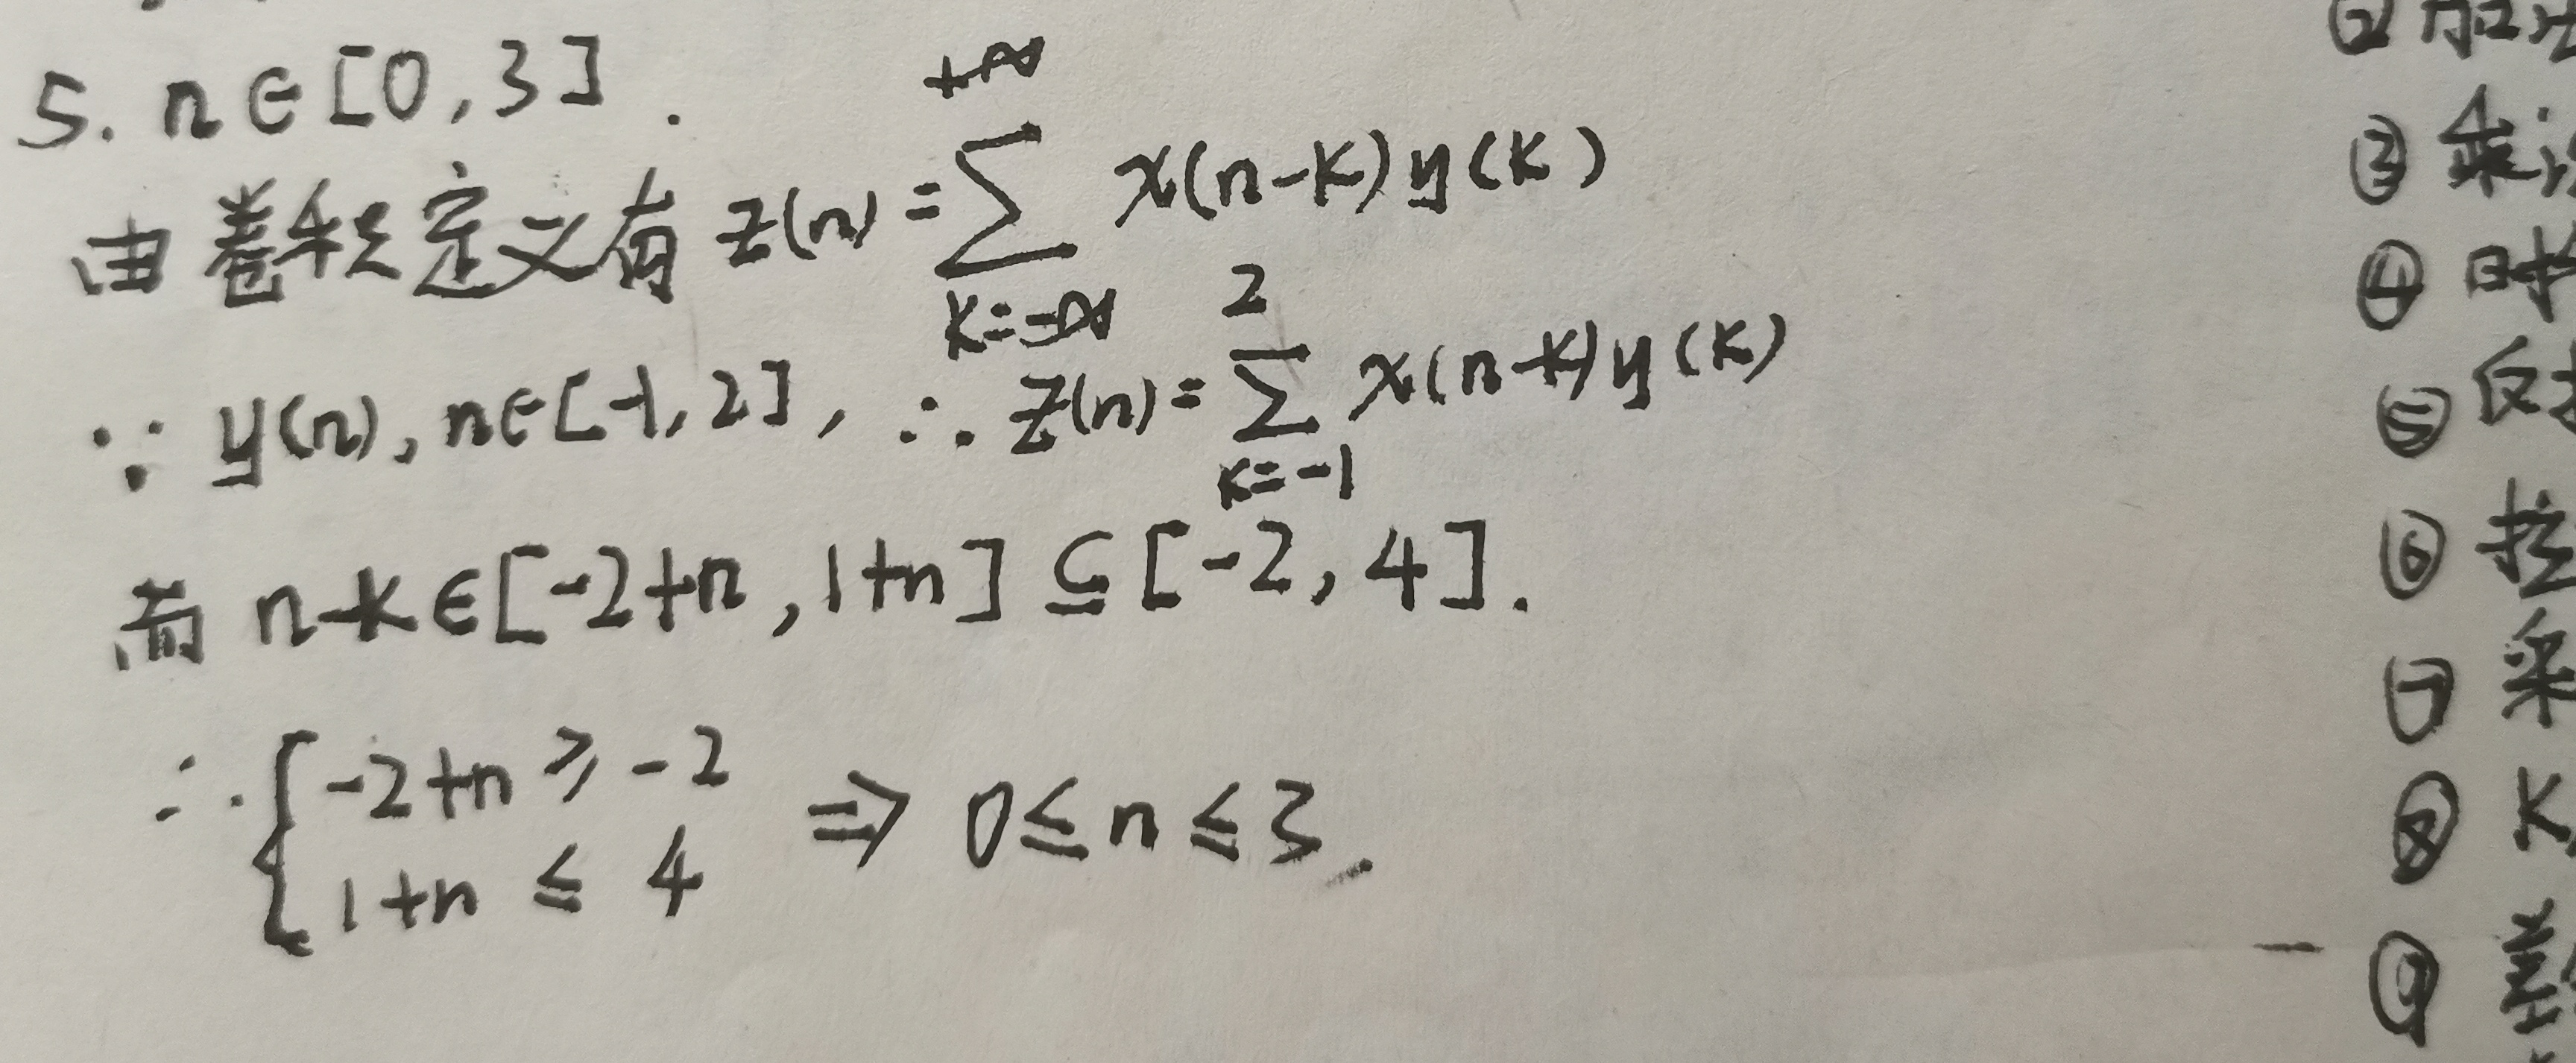 5. n∈[0,3].
由卷积定义有 z(n)=∑_{k=-∞}^{+∞} x(n-k)y(k)
∵ y(n), n∈[-1,2], ∴ z(n)=∑_{k=-1}^{2} x(n-k)y(k)
而 n-k∈[-2+n,1+n]⊆[-2,4].
∴ { -2+n ≥ -2
1+n ≤ 4 ⇒ 0≤n≤3.
② 加
③ 乘
④ 时
⑤ 反
⑥
⑦ 采
⑧ K
⑨ 差